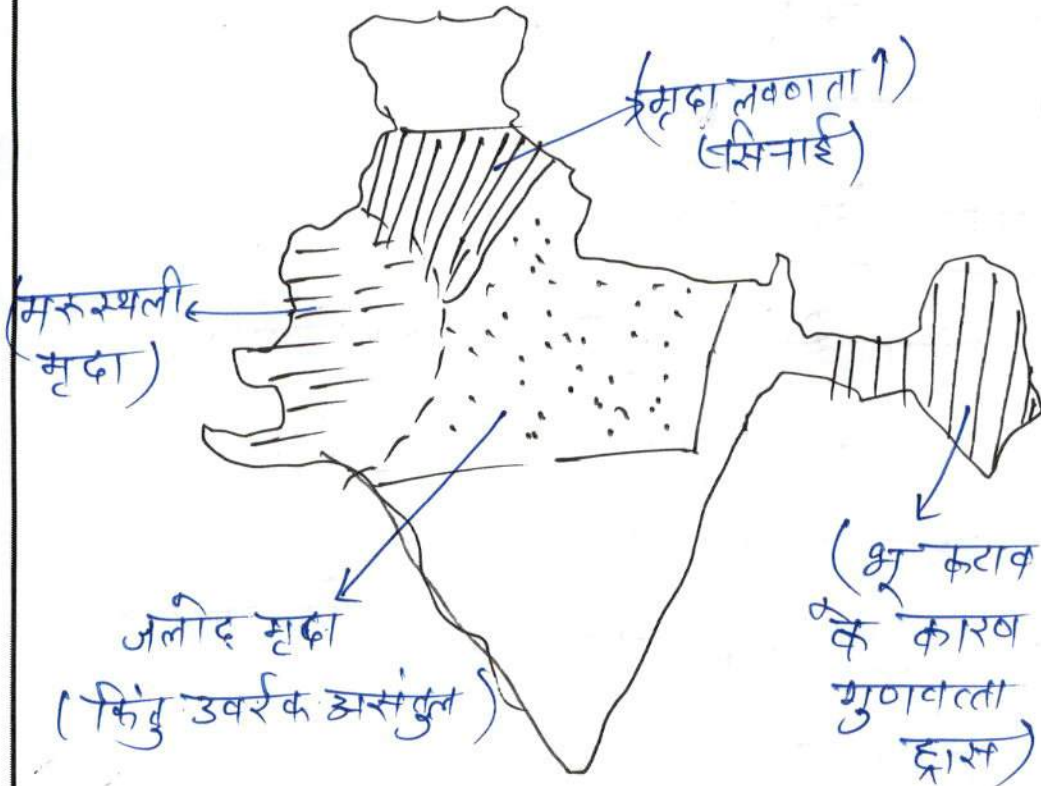 (मृदा लवणता ↑)
(सिंचाई)
(मरुस्थली
मृदा)
जलोढ़ मृदा
(किंतु उर्वरक असंतुल)
(भू कटाव
के कारण
गुणवत्ता
ह्रास)